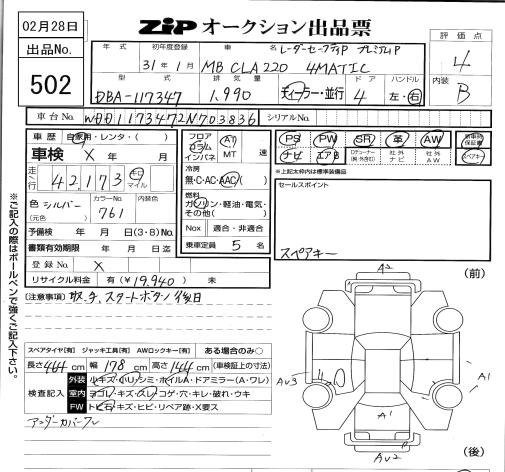 02月28日
ZIP オークション出品票
出品No.
502
年式 初年度登録 車名 レーダーセーフティP プレミアムP
31年1月 MB CLA220 4MATIC
型式 排気量 ドア ハンドル
DBA-117347 1,990 ディーラー・並行 4 左・右
評価点
4
内装 B
車台No. WDD1173472N703836 シリアルNo.
車歴 自家用・レンタ・( )
車検 X 年 月
走行 42,173 キロ マイル
色 シルバー カラーNo. 761 内装色
(元色)
予備検 年 月 日(3・8)No.
書類有効期限 年 月 日迄
登録No. X
リサイクル料金 有(¥19,940)未
フロア コラム インパネ AT MT 速
冷房 無・C・AC・AAC( )
燃料 ガソリン・軽油・電気・その他( )
Nox 適合・非適合
乗車定員 5 名
PS PW SR 革 AW 新車時保証書
ナビ エアB Dチューナー 社外ナビ 社外AW スペアキー
※上記太枠内は標準装備品
セールスポイント
スペアキー
(注意事項) 取、チ、スタートボタン 後日
スペアタイヤ[有] ジャッキ工具[有] AWロックキー[有] ある場合のみ○
長さ 464 cm 幅 178 cm 高さ 144 cm (車検証上の寸法)
検査記入
外装 小キズ・小凹・シミ・ホイルA・ドアミラー(A・ワレ)
室内 ヨゴレ・キズ・スレ・コゲ・穴・キレ・破れ・ウキ
FW トビ石・キズ・ヒビ・リペア跡・X要ス
アンダーカバーワレ
※ご記入の際はボールペンで強くご記入下さい。
(前)
A2
AU3
A1
A1
AU2
(後)